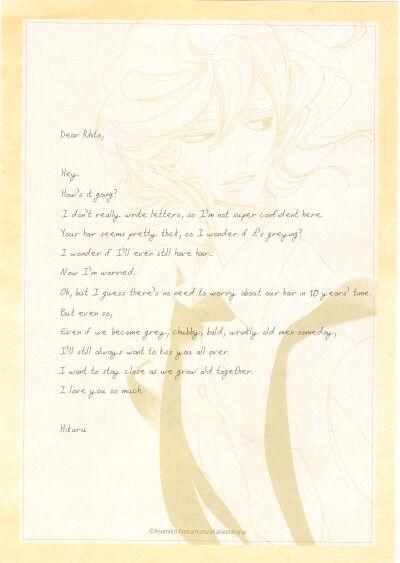 Dear Rihito,
Hey.
How's it going?
I don't really write letters, so I'm not super confident here.
Your hair seems pretty thick, so I wonder if it's greying?
I wonder if I'll even still have hair...
Now I'm worried.
Oh, but I guess there's no need to worry about our hair in 10 years' time.
But even so,
Even if we become grey, chubby, bald, wrinkly old men someday,
I'll still always want to kiss you all over.
I want to stay close as we grow old together.
I love you so much.
Hikaru
©Asumiko Nakamura/akaneshinsha